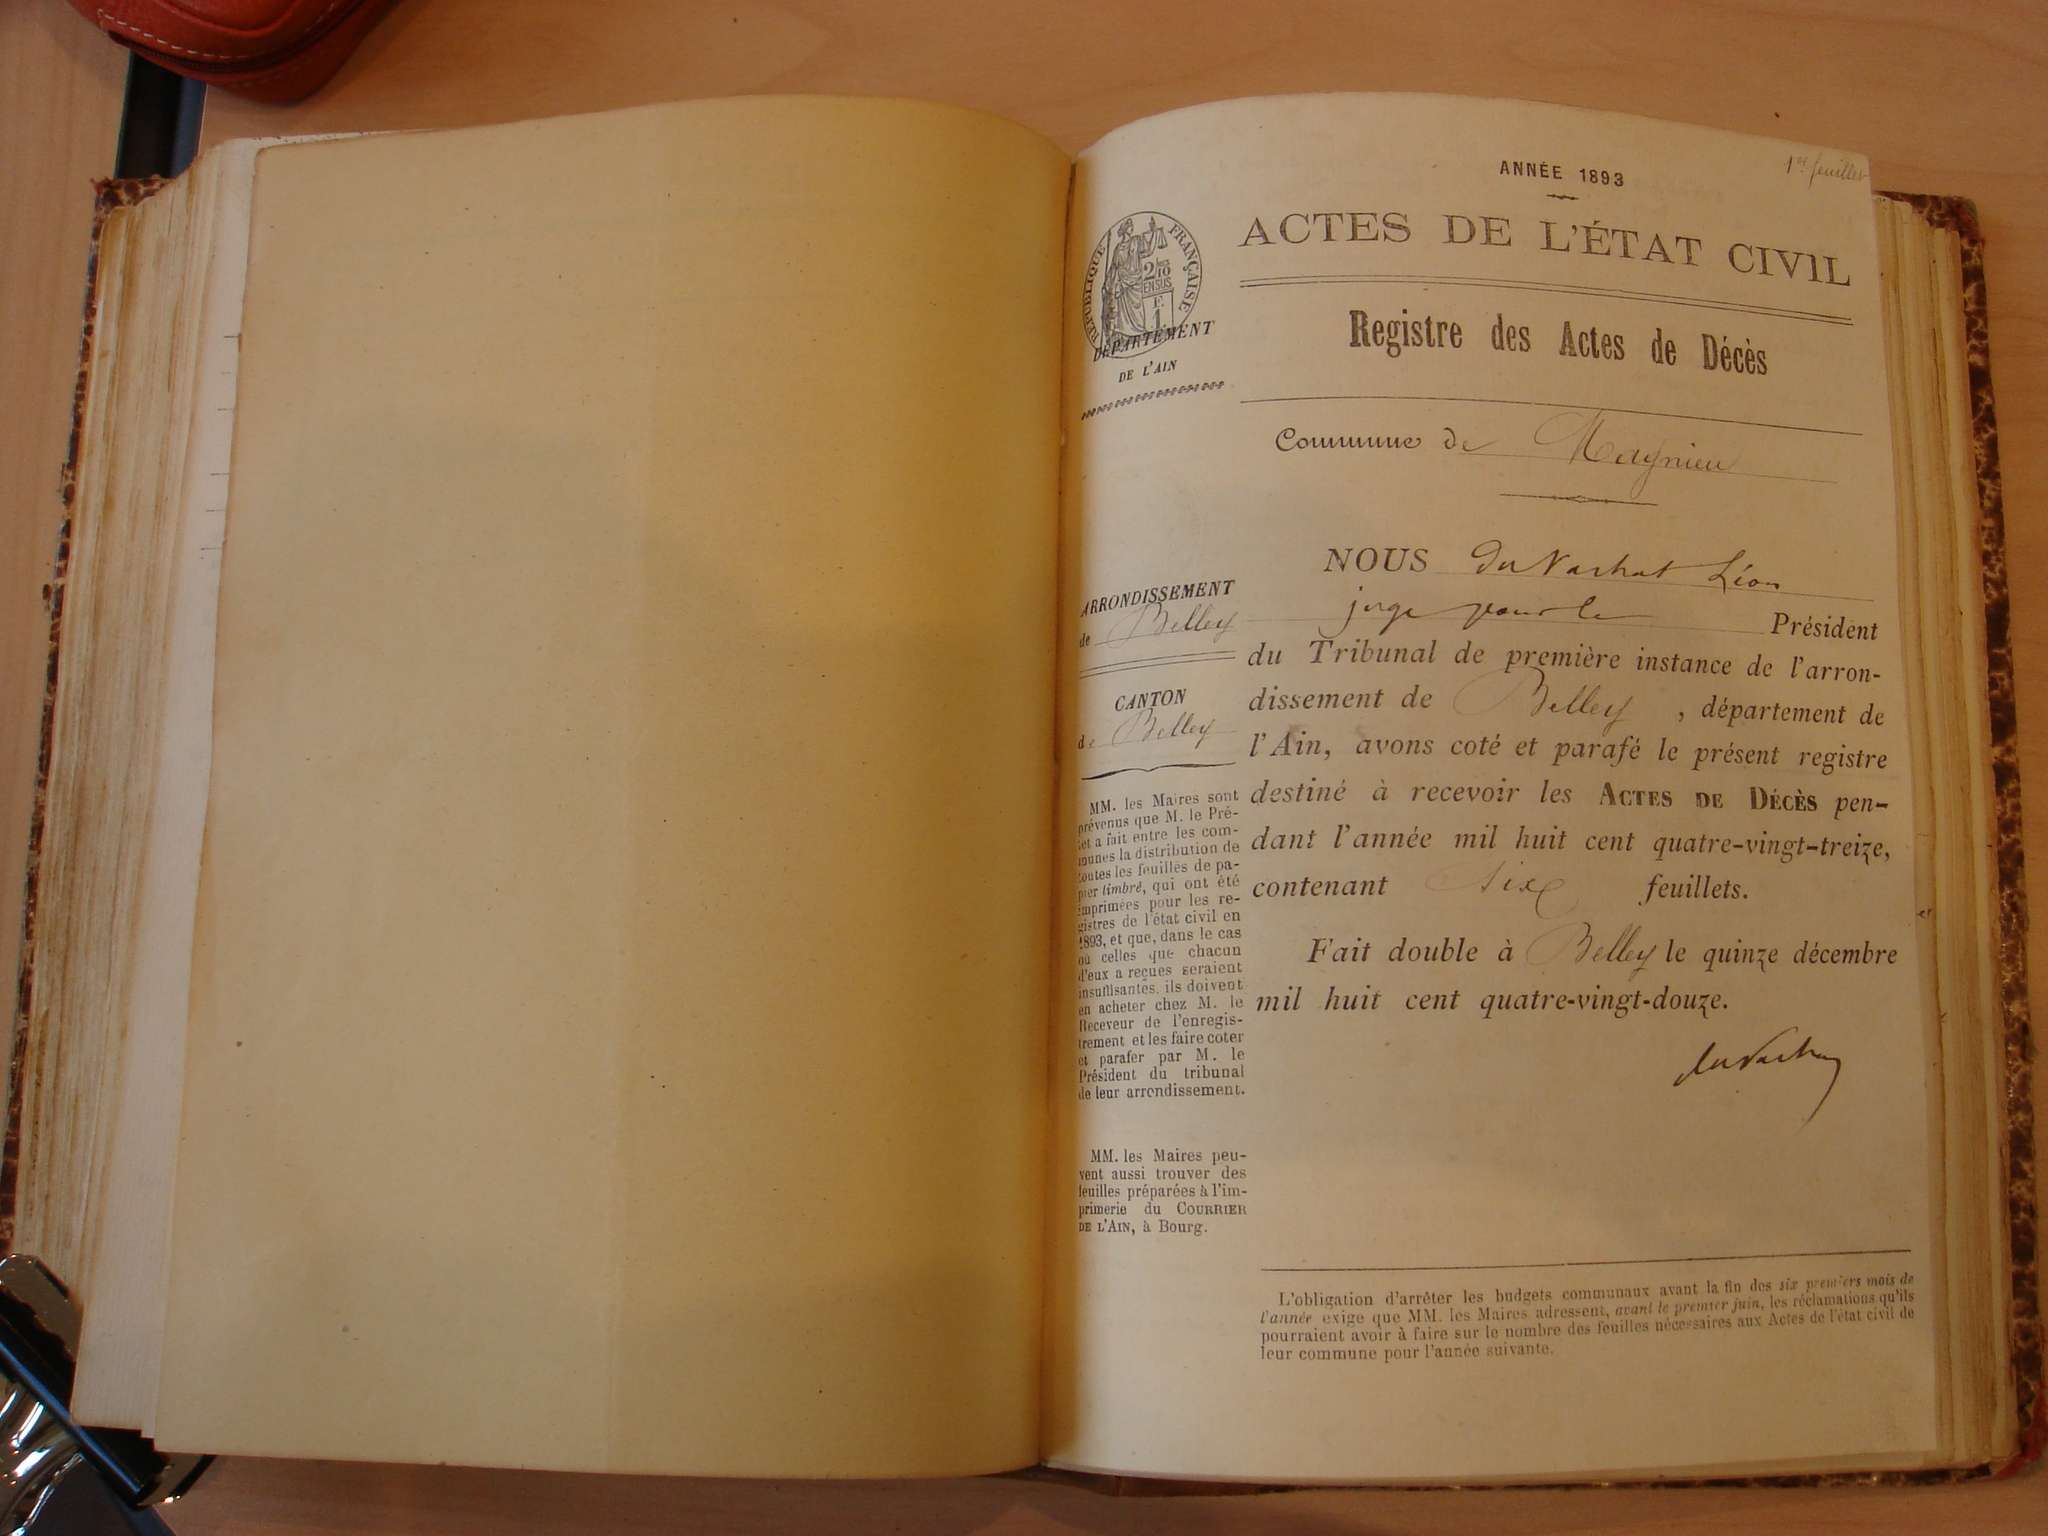 1er feuillet
ANNÉE 1893
ACTES DE L'ÉTAT CIVIL
Registre des Actes de Décès
Commune de Magnieu
RÉPUBLIQUE FRANÇAISE
2/10
EN SUS
1
DÉPARTEMENT
DE L'AIN
ARRONDISSEMENT
de Belley
CANTON
de Belley
MM. les Maires sont
prévenus que M. le Pré-
fet a fait entre les com-
munes la distribution de
toutes les feuilles de pa-
pier timbré, qui ont été
imprimées pour les re-
gistres de l'état civil en
1893, et que, dans le cas
où celles que chacun
d'eux a reçues seraient
insuffisantes, ils doivent
en acheter chez M. le
Receveur de l'enregis-
trement et les faire coter
et parafer par M. le
Président du tribunal
de leur arrondissement.
MM. les Maires peu-
vent aussi trouver des
feuilles préparées à l'im-
primerie du COURRIER
DE L'AIN, à Bourg.
NOUS du Vachat Léon
juge pour le Président
du Tribunal de première instance de l'arron-
dissement de Belley, département de
l'Ain, avons coté et parafé le présent registre
destiné à recevoir les ACTES DE DÉCÈS pen-
dant l'année mil huit cent quatre-vingt-treize,
contenant six feuillets.
Fait double à Belley le quinze décembre
mil huit cent quatre-vingt-douze.
du Vachat
L'obligation d'arrêter les budgets communaux avant la fin des six premiers mois de
l'année exige que MM. les Maires adressent, avant le premier juin, les réclamations qu'ils
pourraient avoir à faire sur le nombre des feuilles nécessaires aux Actes de l'état civil de
leur commune pour l'année suivante.